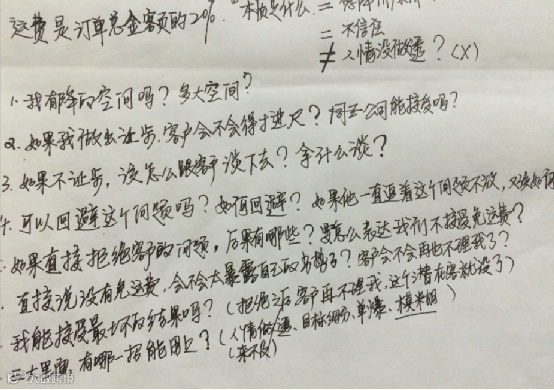 运费是订单总金额的20%. 本质是什么 =
= 不信任
≠ 人情没做透？(X)
1. 我有降的空间吗？多大空间？
2. 如果我做出让步，客户会不会得寸进尺？同公司能接受吗？
3. 如果不让步，该怎么跟客户谈下去？拿什么谈？
可以回避这个问题吗？如何回避？如果他一直逼着这个问题不放，又该如何
如果直接拒绝客户的问题，后果有哪些？要怎么表达我们不接受免运费？
直接说没有免运费，会不会太暴露自己的 客户会不会再也不理我了？
我能接受最坏的结果吗？(拒绝之后客户再不理我，这个潜在客就没了)
三大 有哪一招能用上？(人情做透、目标 、单爆、模 )
(来不及)